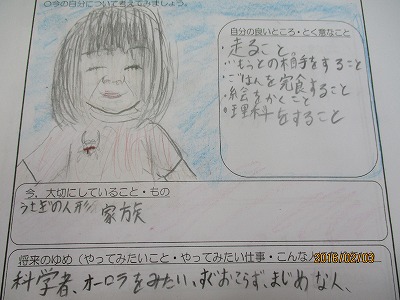 ○今の自分について考えてみましょう。
自分の良いところ・とく意なこと
・走ること。
・いもうとの相手をすること
・ごはんを完食すること
・絵をかくこと
・理科をすること
今、大切にしていること・もの
うさぎの人形 家族
将来のゆめ（やってみたいこと・やってみたい仕事・こんな人
2016/02/03
科学者、オーロラをみたい。すぐおこらず、まじめな人、